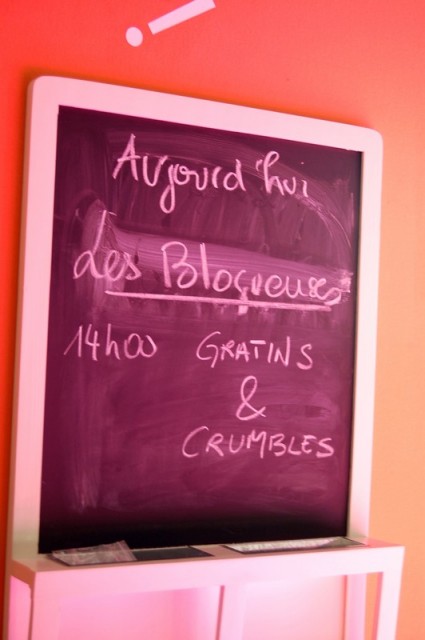 Aujourd'hui
Les Blogueuses
14h00 GRATINS
&
CRUMBLES